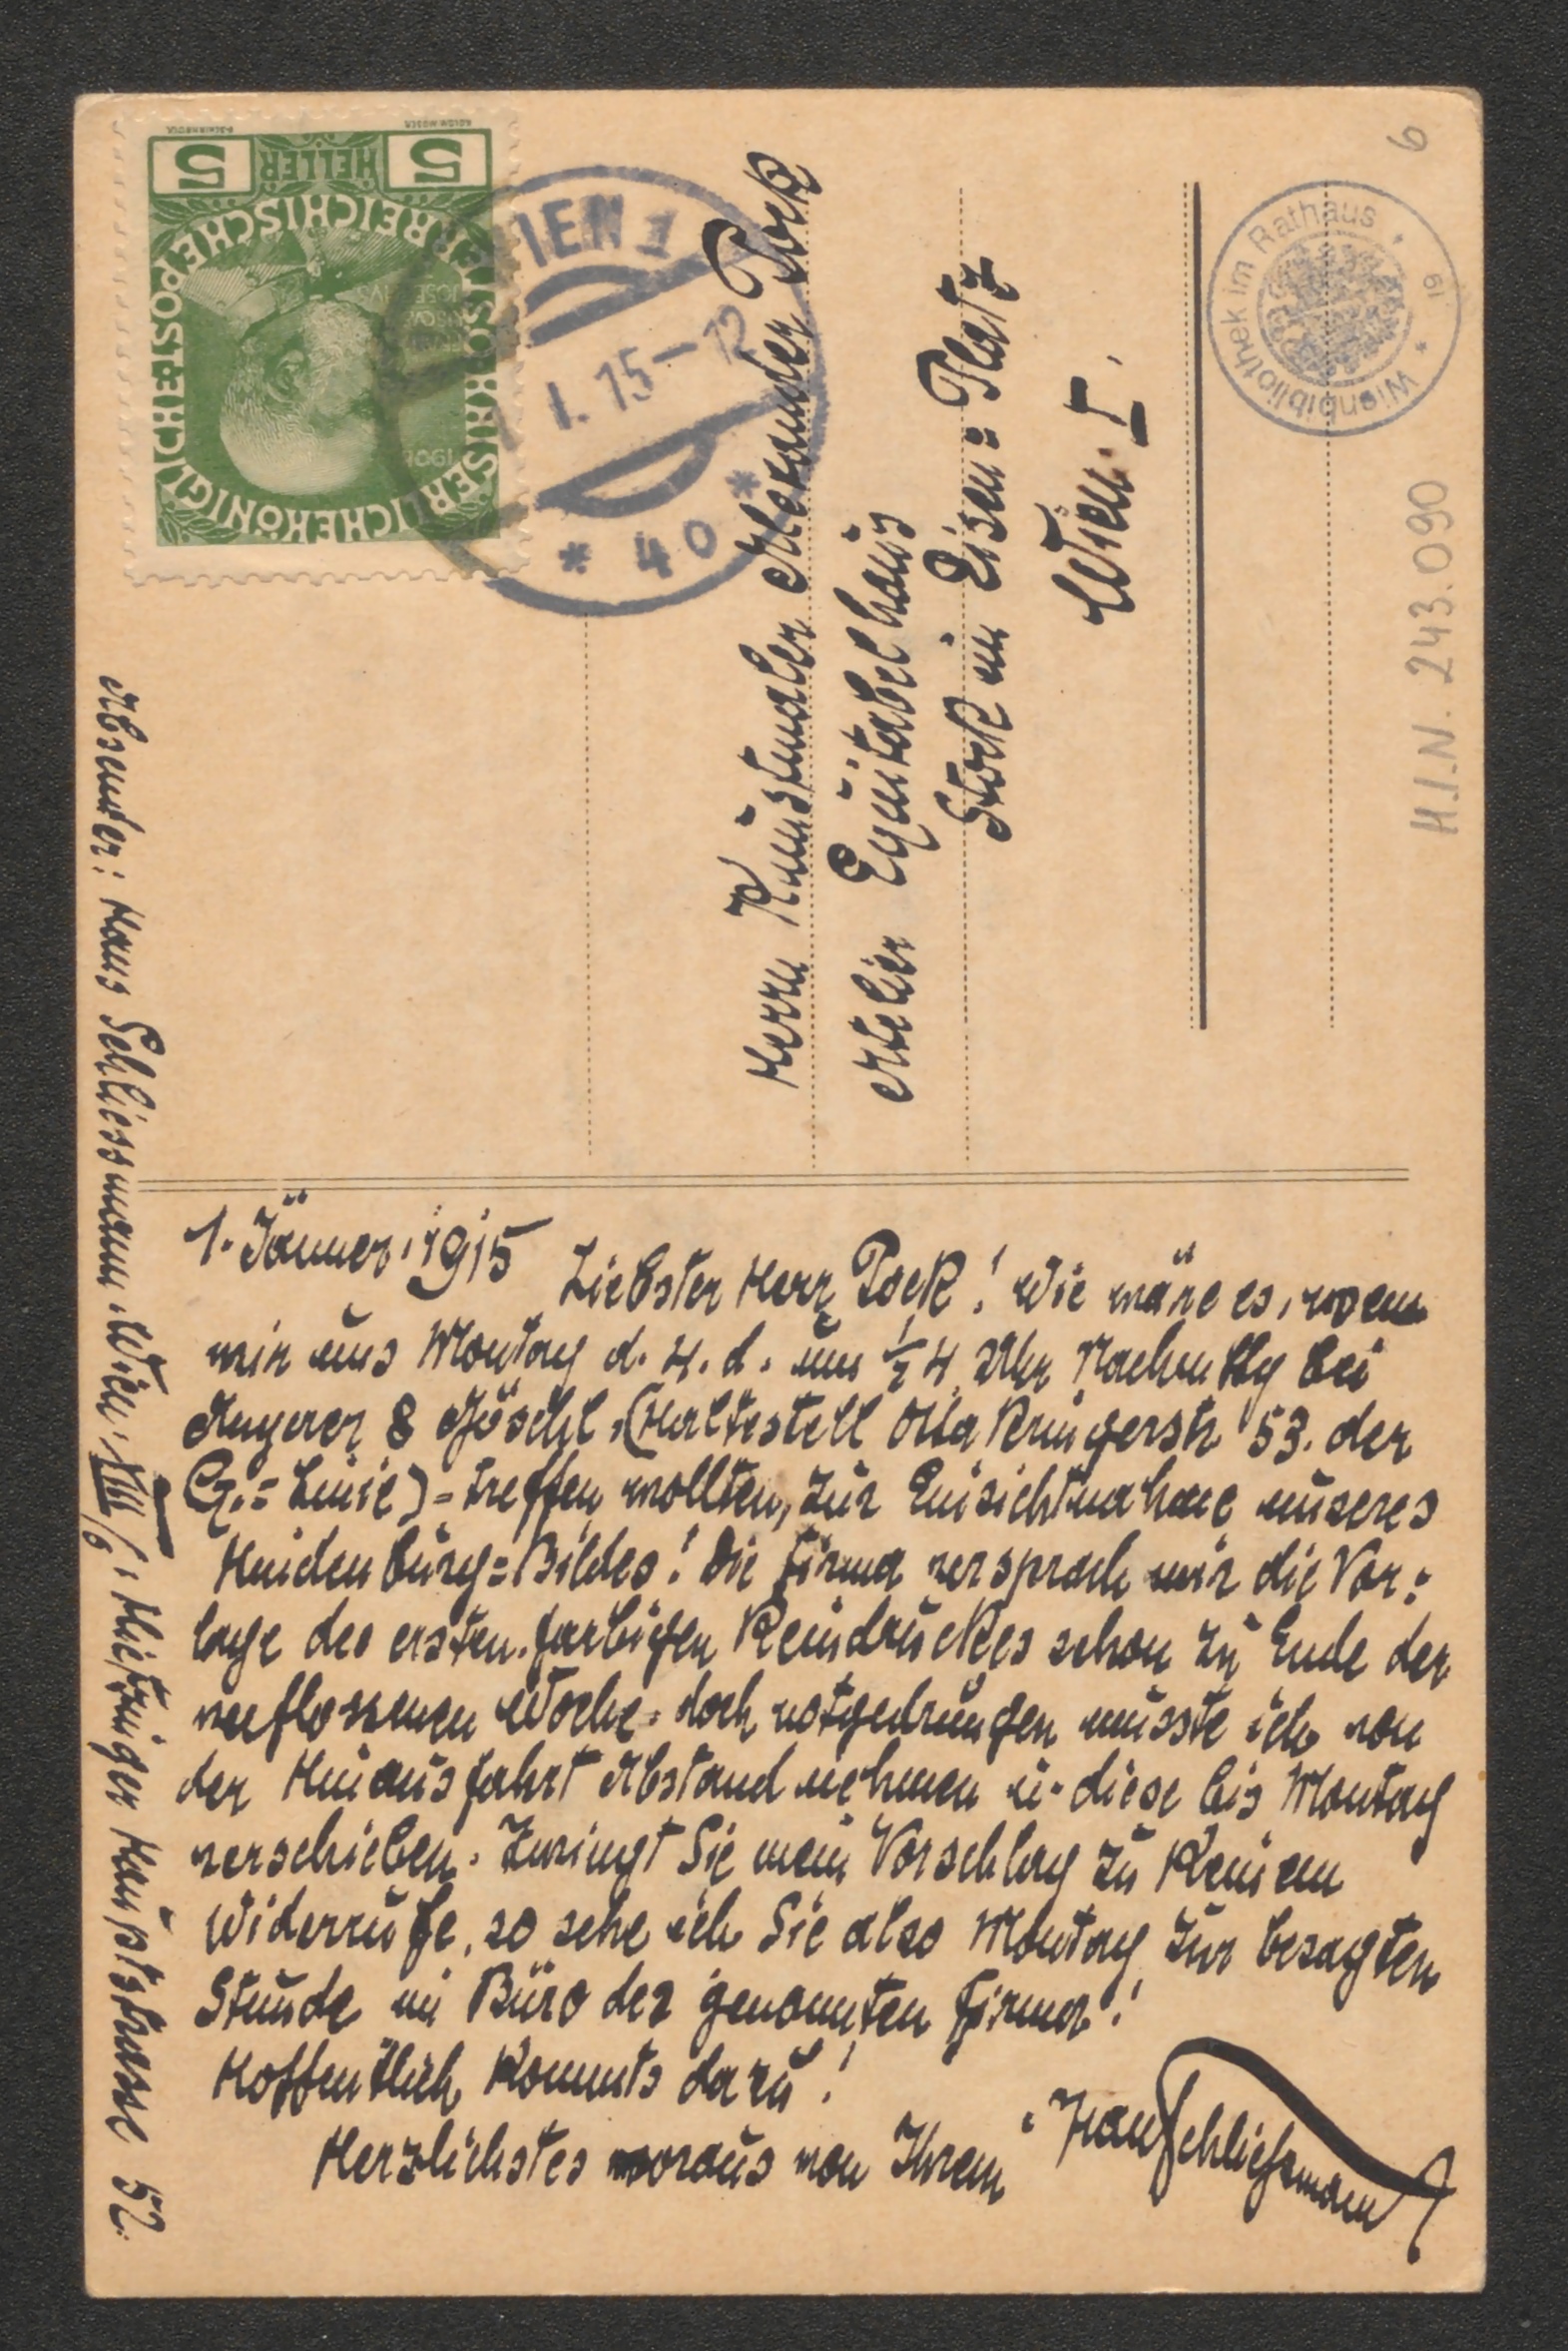 5 HELLER 5
KAISERLICHE KÖNIGLICHE ÖSTERREICHISCHE POST
1908
WIEN 1
I. 15
* 40 *
Herrn Kunstmaler Alexander Pock
Atelier Equitabelhaus
Stock im Eisen=Platz
Wien. I.
Wienbibliothek im Rathaus * 19 *
6
H.I.N. 243.090
Absender: Hans Schliessmann. Wien, XIII/6, Hietzinger Hauptstrasse 52.
1. Jänner, 1915 Liebster Herr Pock! Wie wäre es, wenn
wir uns Montag d. 4. d. um ½ 4 Uhr Nachmttg bei
Angerer & Göschl, (Haltestell Ottakringerstr 53. der
G.= Linie) = treffen wollten, zur Einsichtnahme unseres
Hindenburg=Bildes! Die Firma versprach mir die Vor=
lage des ersten, farbigen Reindruckes schon zu Ende der
verflossenen Woche, doch notgedrungen musste ich von
der Hinausfahrt Abstand nehmen u. diese bis Montag
verschieben. Zwingt Sie mein Vorschlag zu keinem
Widerrufe, so sehe ich Sie also Montag zur besagten
Stunde im Büro der genannten Firma!
Hoffentlich kommts dazu!
Herzlichstes voraus von Ihrem Hans Schliessmann